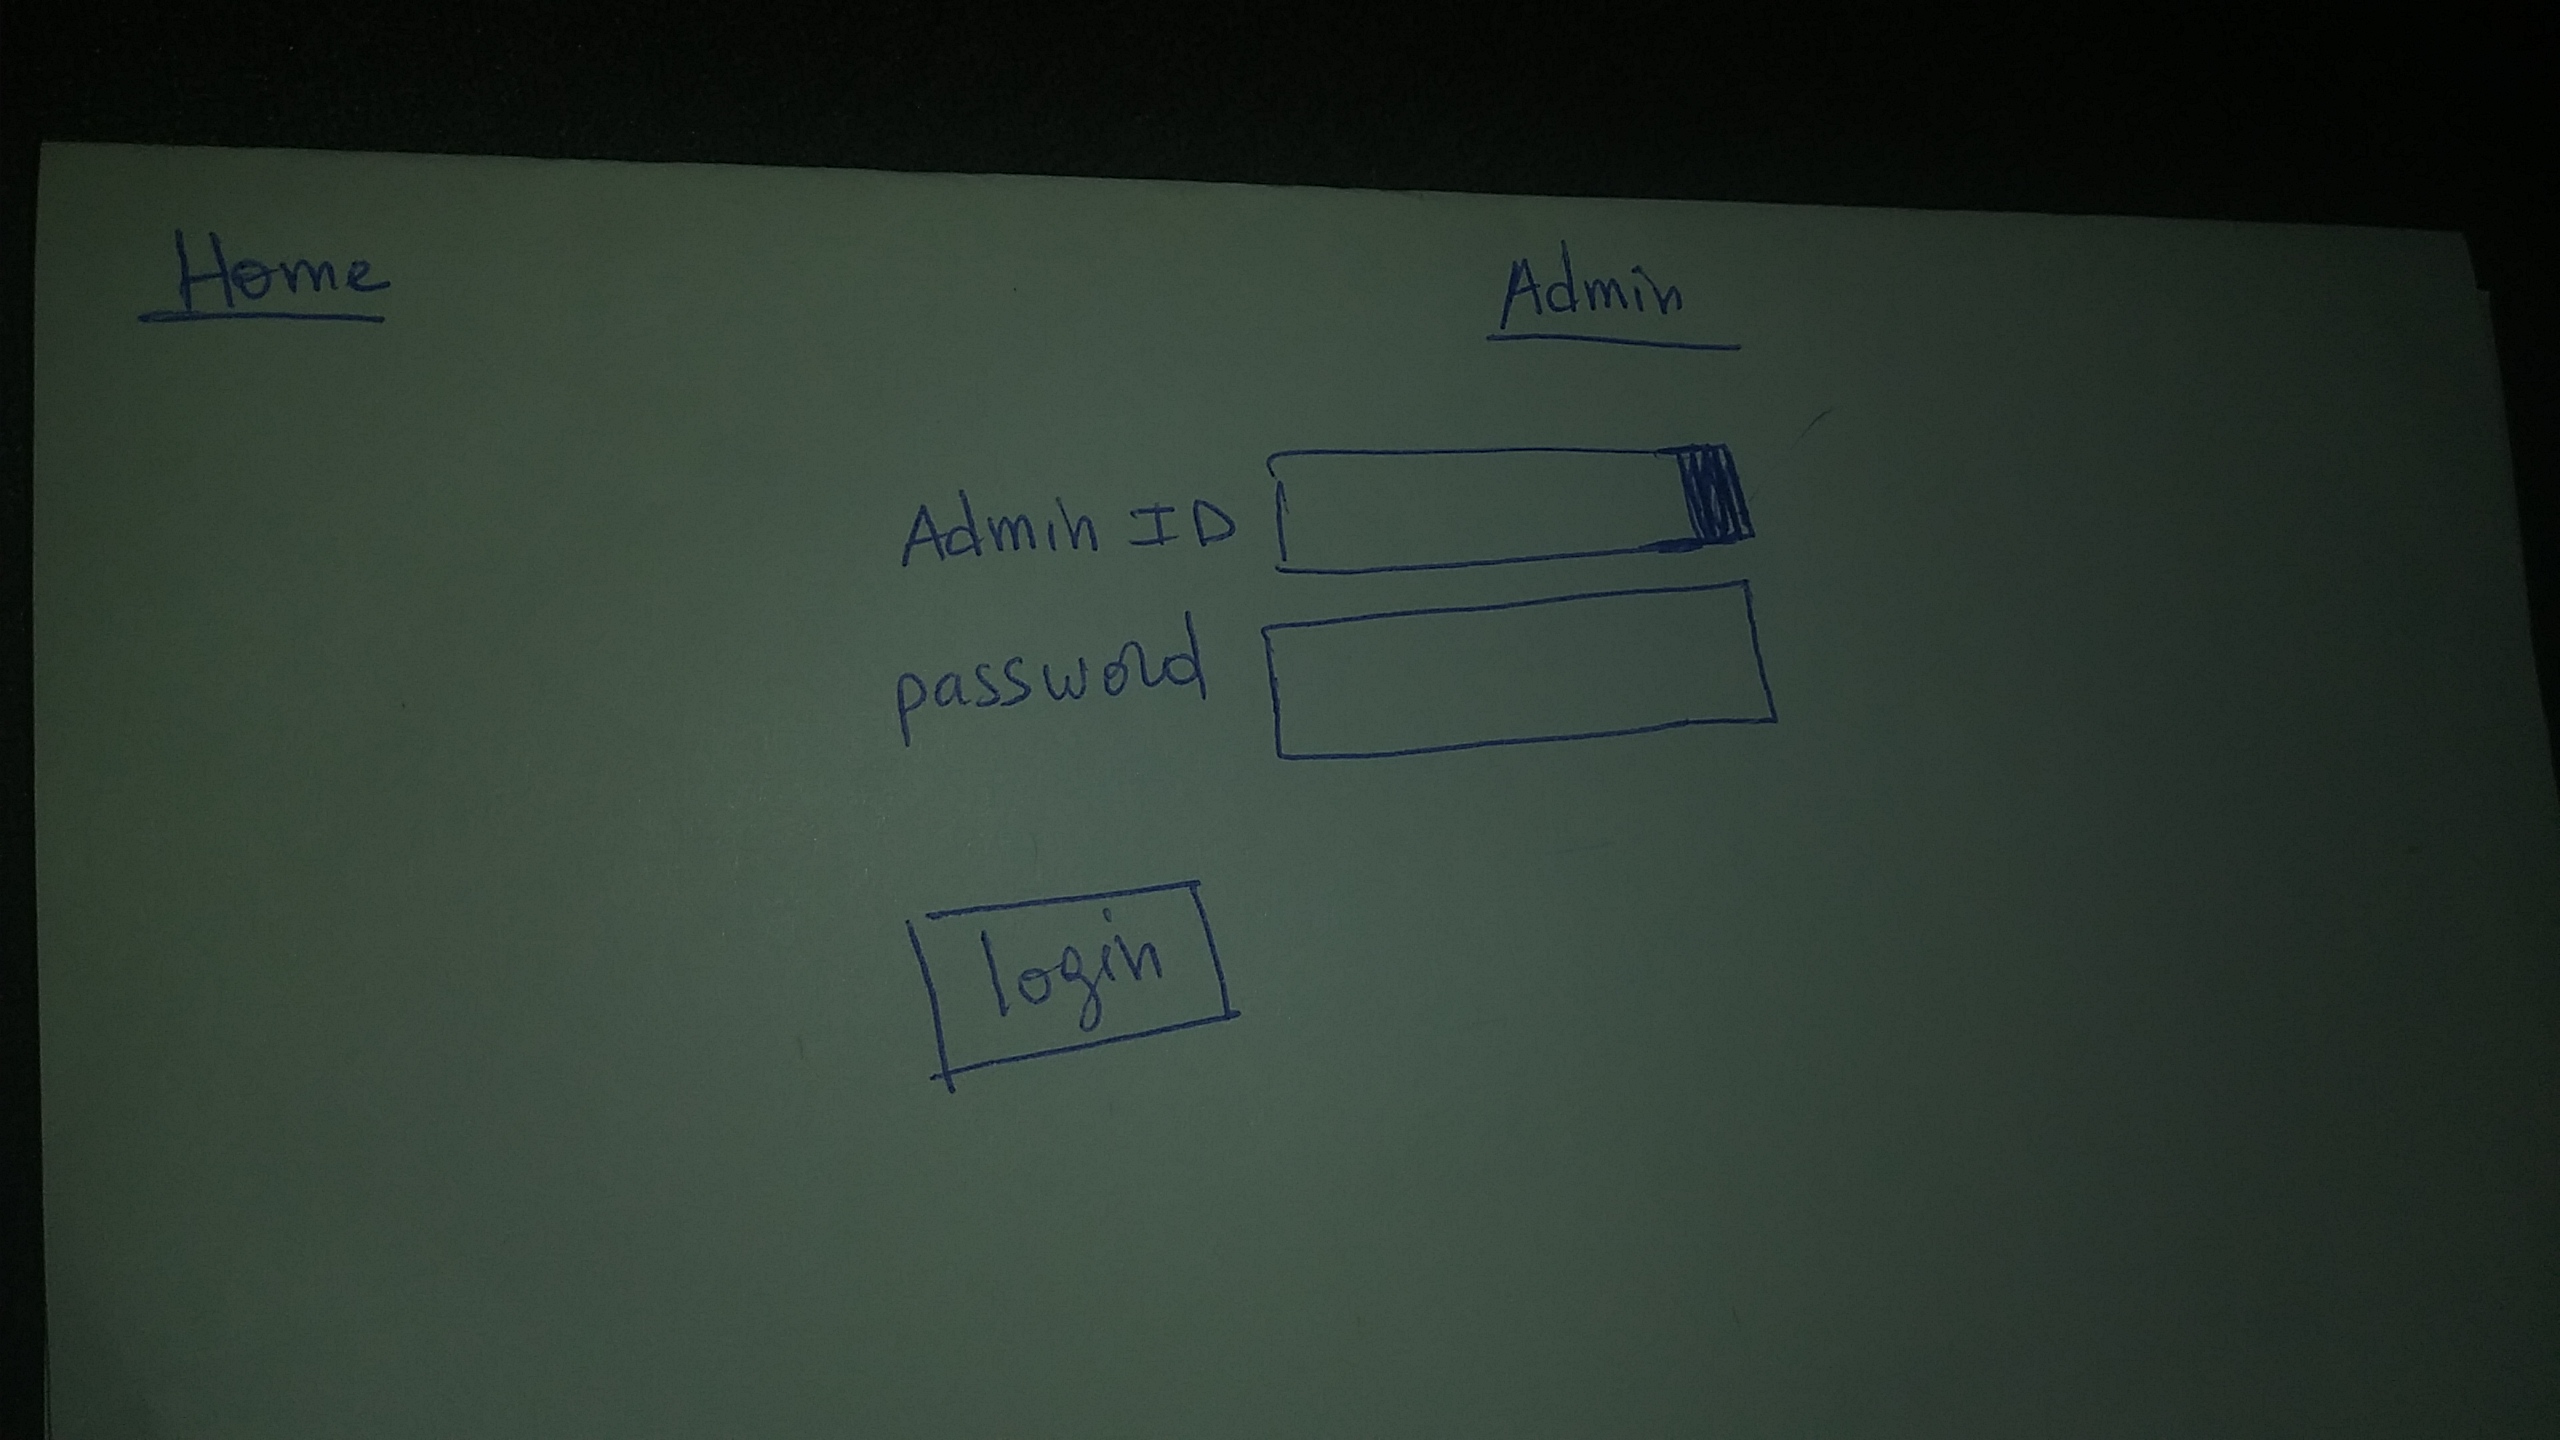 Home
Admin
Admin ID
password
login